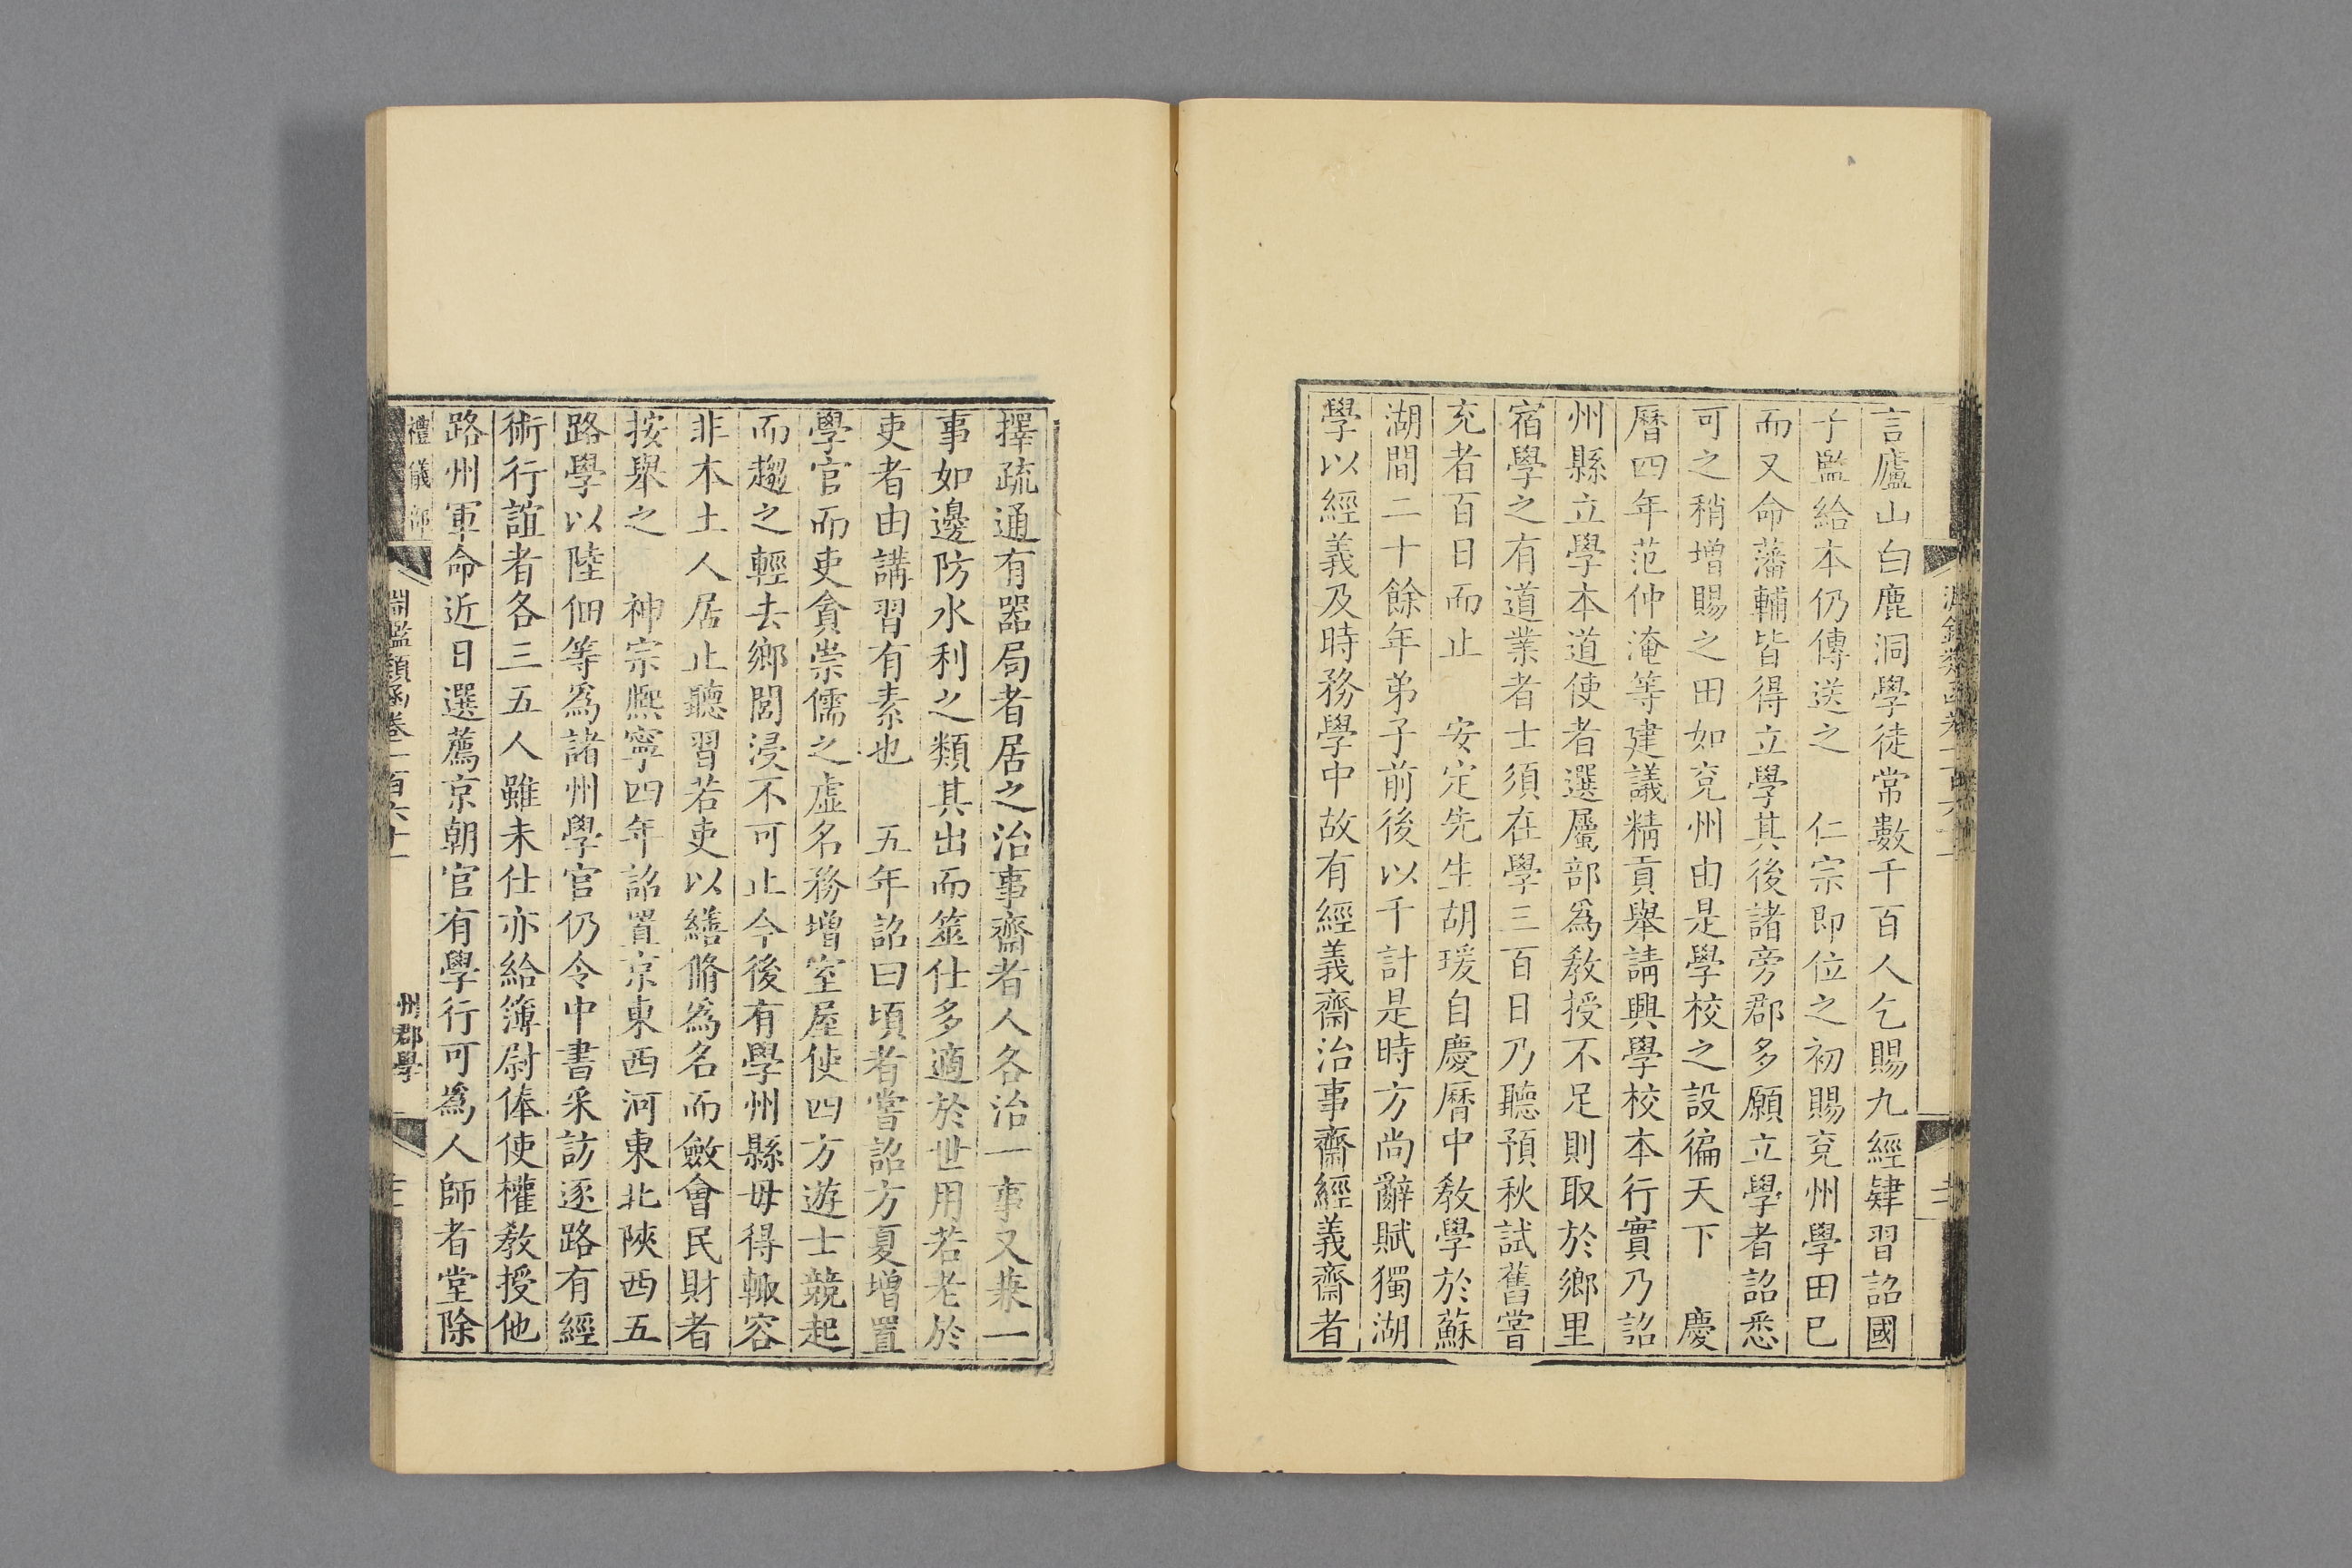 言廬山白鹿洞學徒常數千百人乞賜九經肄習詔國
子監給本仍傳送之　仁宗即位之初賜兗州學田已
而又命藩輔皆得立學其後諸旁郡多願立學者詔悉
可之稍增賜之田如兗州由是學校之設徧天下　慶
曆四年范仲淹等建議精貢舉請興學校本行實乃詔
州縣立學本道使者選屬部爲敎授不足則取於鄉里
宿學之有道業者士須在學三百日乃聽預秋試舊嘗
充者百日而止　安定先生胡瑗自慶曆中敎學於蘇
湖間二十餘年弟子前後以千計是時方尚辭賦獨湖
學以經義及時務學中故有經義齋治事齋經義齋者
擇疏通有器局者居之治事齋者人各治一事又兼一
事如邊防水利之類其出而筮仕多適於世用若老於
吏者由講習有素也　五年詔曰頃者嘗詔方夏增置
學官而吏貪崇儒之虛名務增室屋使四方遊士競起
而趨之輕去鄉閭浸不可止今後有學州縣毋得輒容
非本土人居止聽習若吏以繕脩爲名而斂會民財者
按舉之　神宗熙寧四年詔置京東西河東北陝西五
路學以陸佃等爲諸州學官仍令中書采訪逐路有經
術行誼者各三五人雖未仕亦給簿尉俸使權敎授他
路州軍命近日選薦京朝官有學行可爲人師者堂除
禮儀部
淵鑑類函卷一百六十一
州郡學